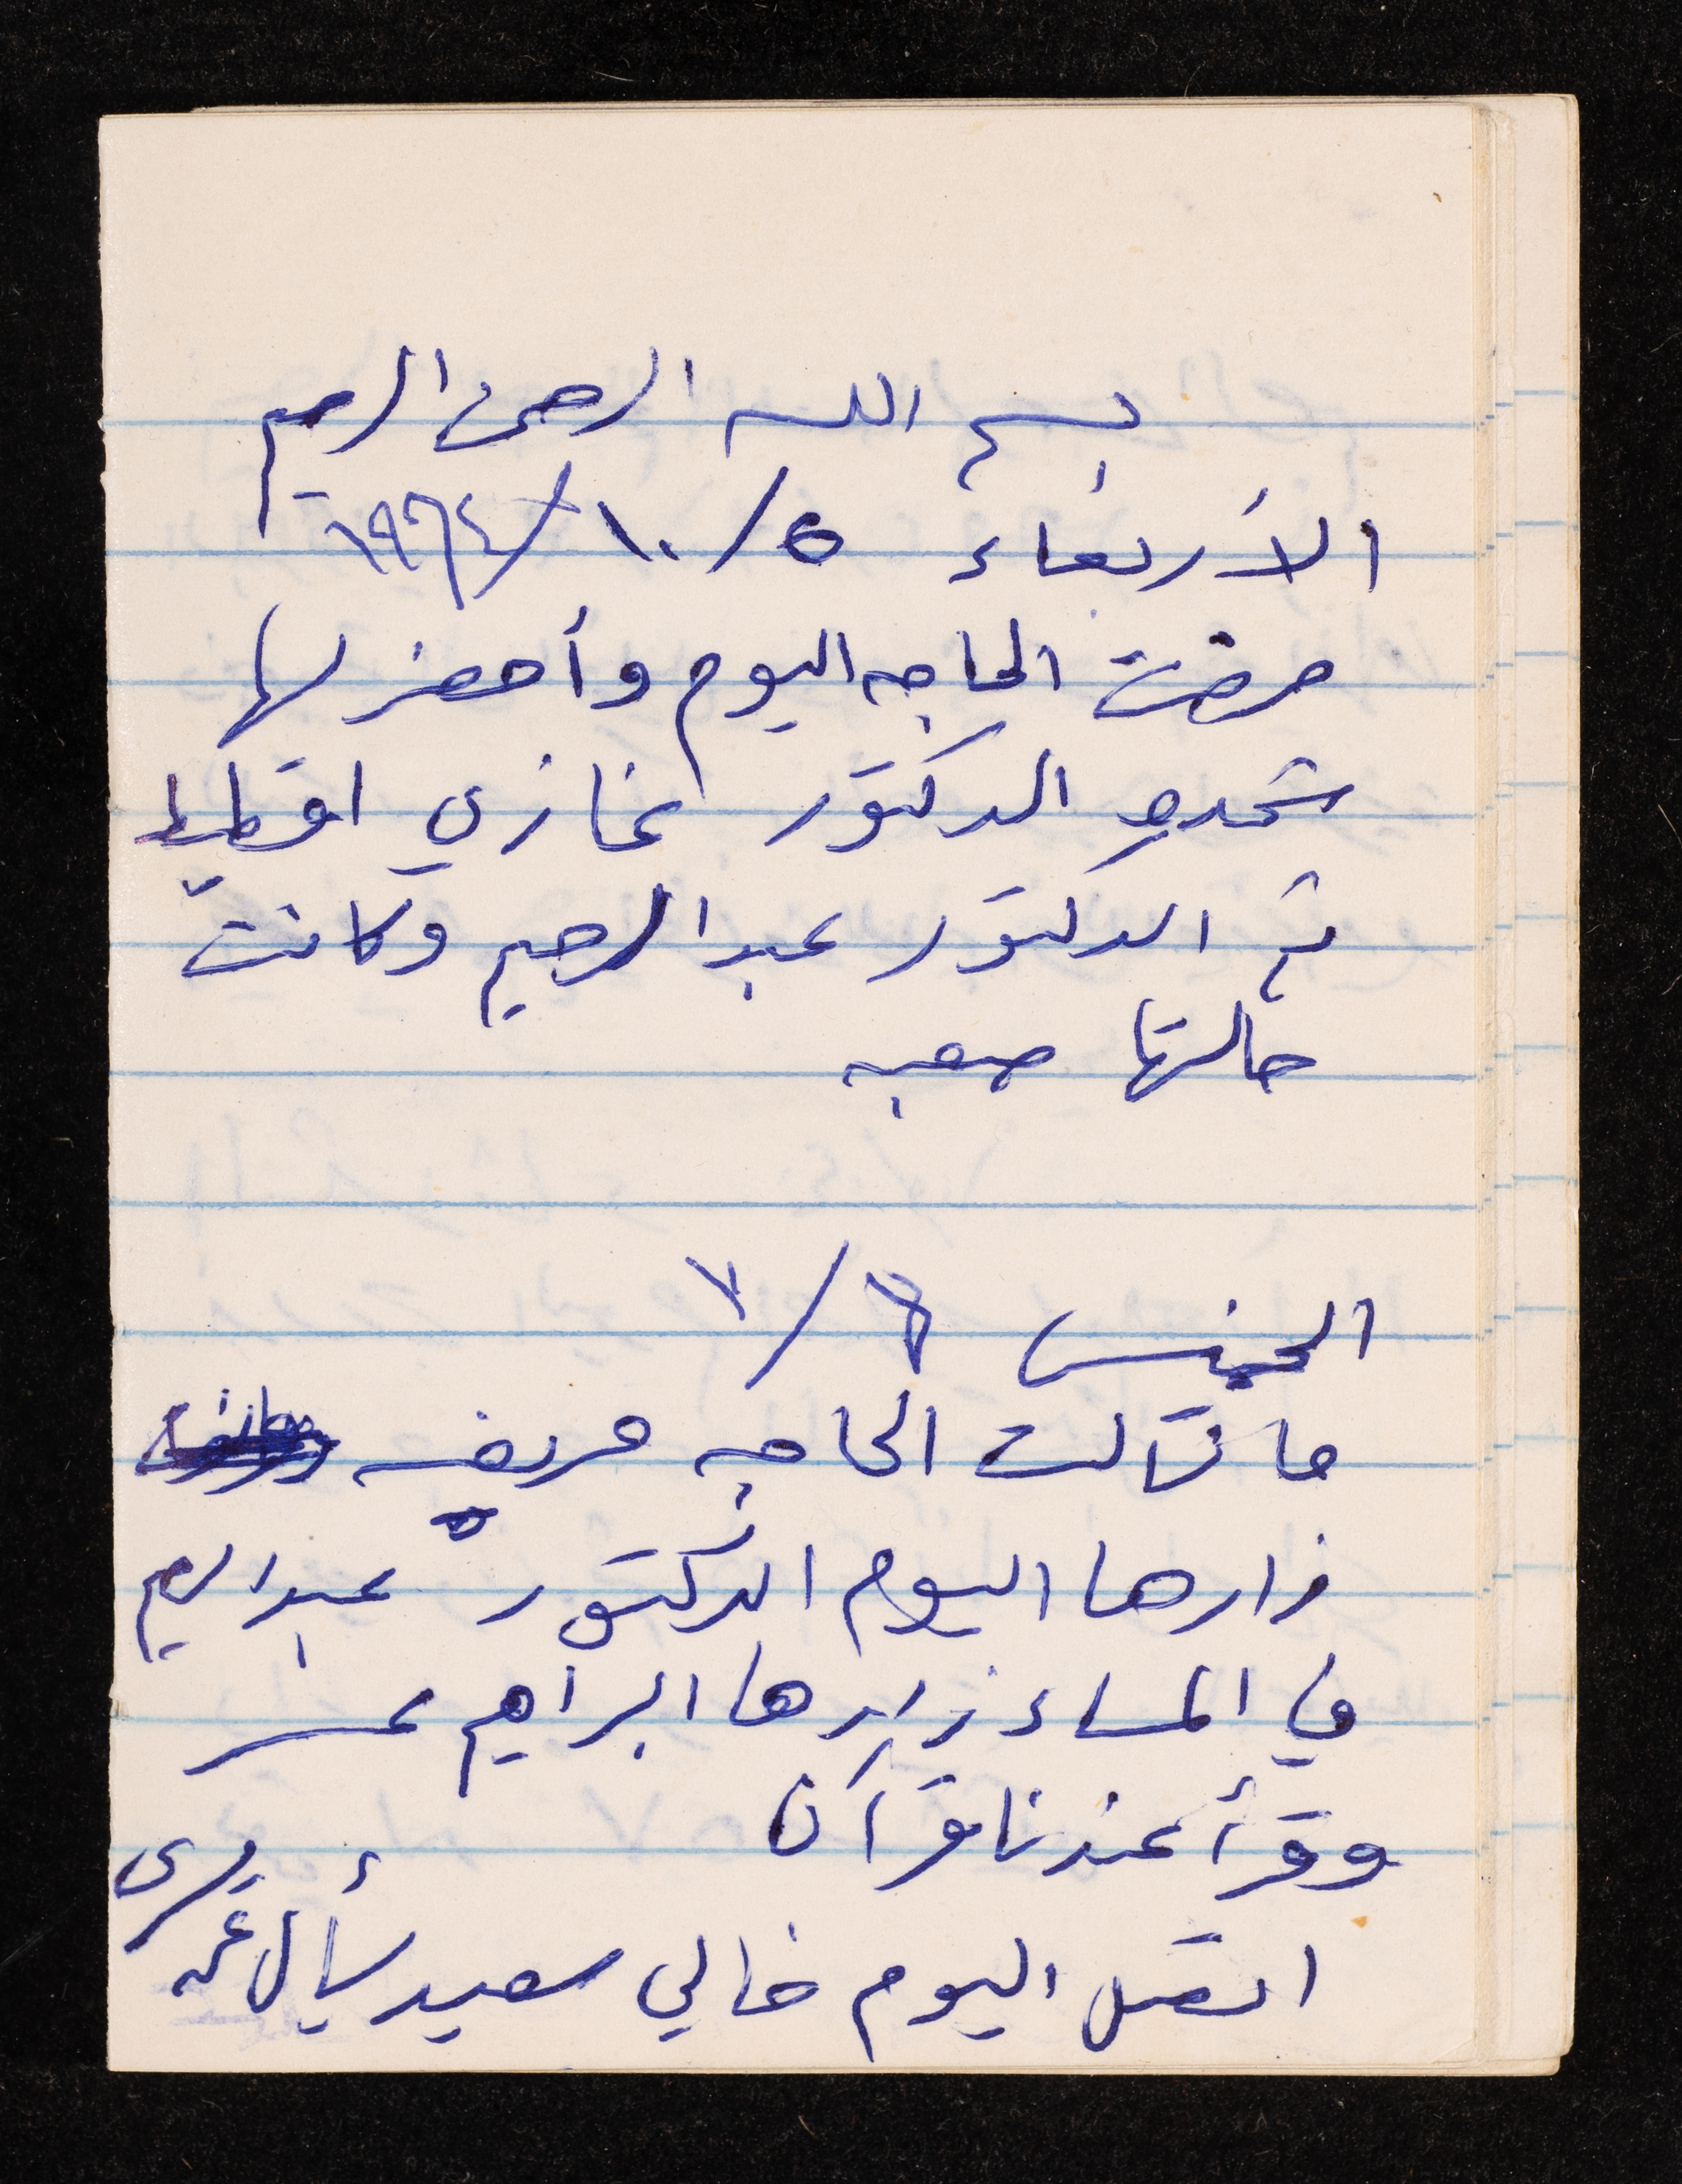 بسم الله الرحمن الرحيم
الأربعاء ٥/١٠/١٩٦٤
مرضت الحاجه اليوم وأحضر لها
الدكتور غازي اقطيط
ثم الدكتور عبد الرحيم وكانت
حالتها صعبه
الخميس ٦/٧
ما زالت الحاجه مريضه
زارها اليوم الدكتور عبد الرحيم
في المساء زارها ابراهيم عمر
وقرأ عندنا قرآن
اتصل اليوم خالي سعيد يسأل عن
يسرى